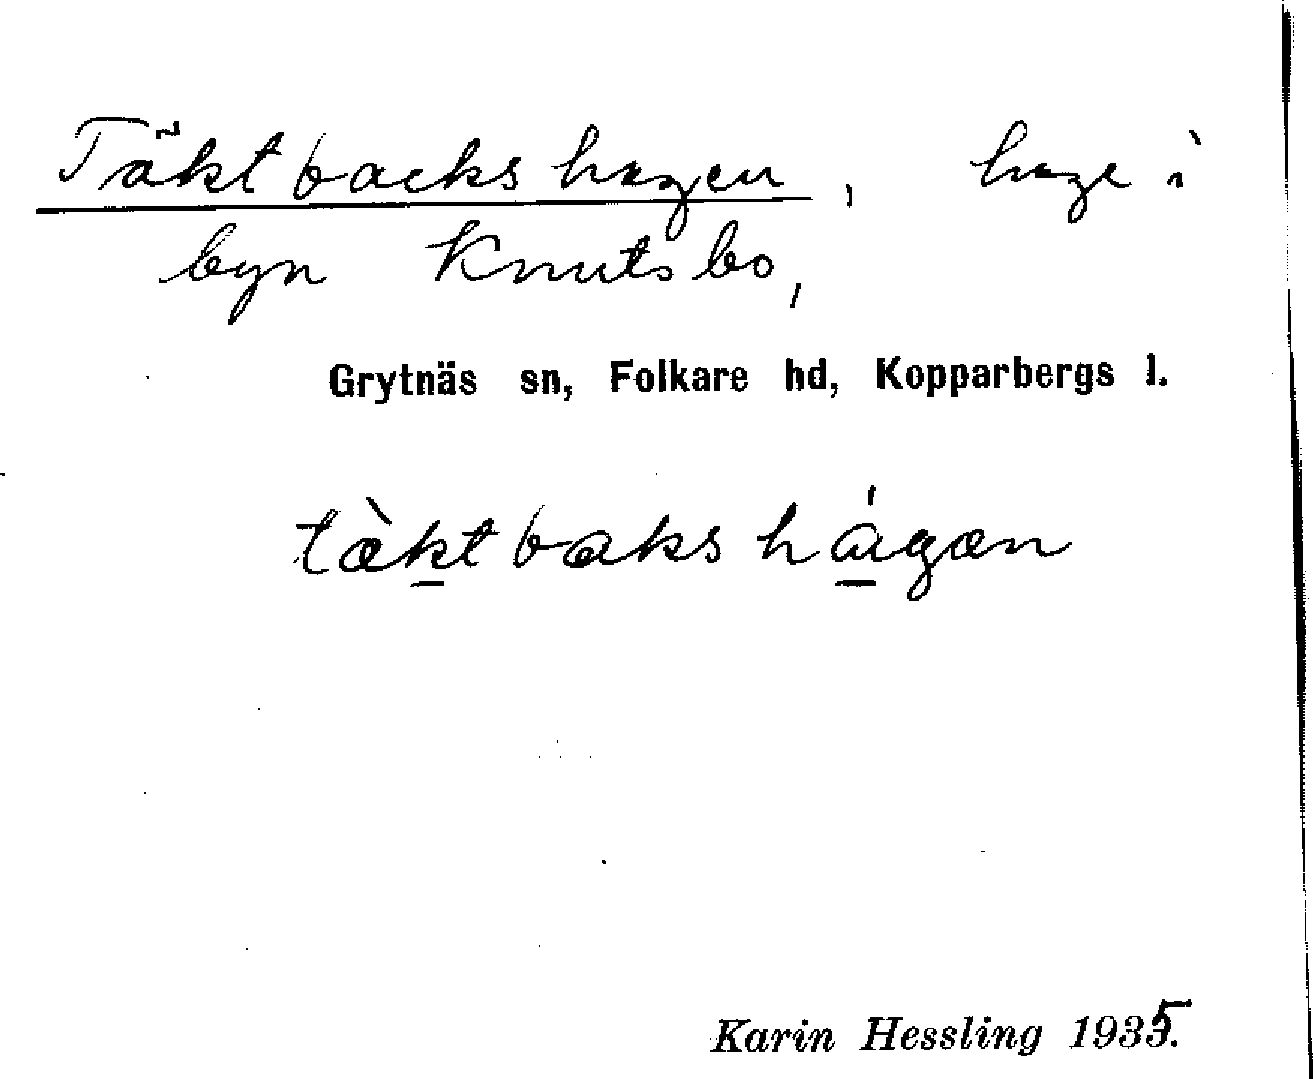 Täktbackshagen, hage i
byn Knutsbo,
Grytnäs sn, Folkare hd, Kopparbergs l.
tæ̀ktbakshágan
Karin Hessling 1935.